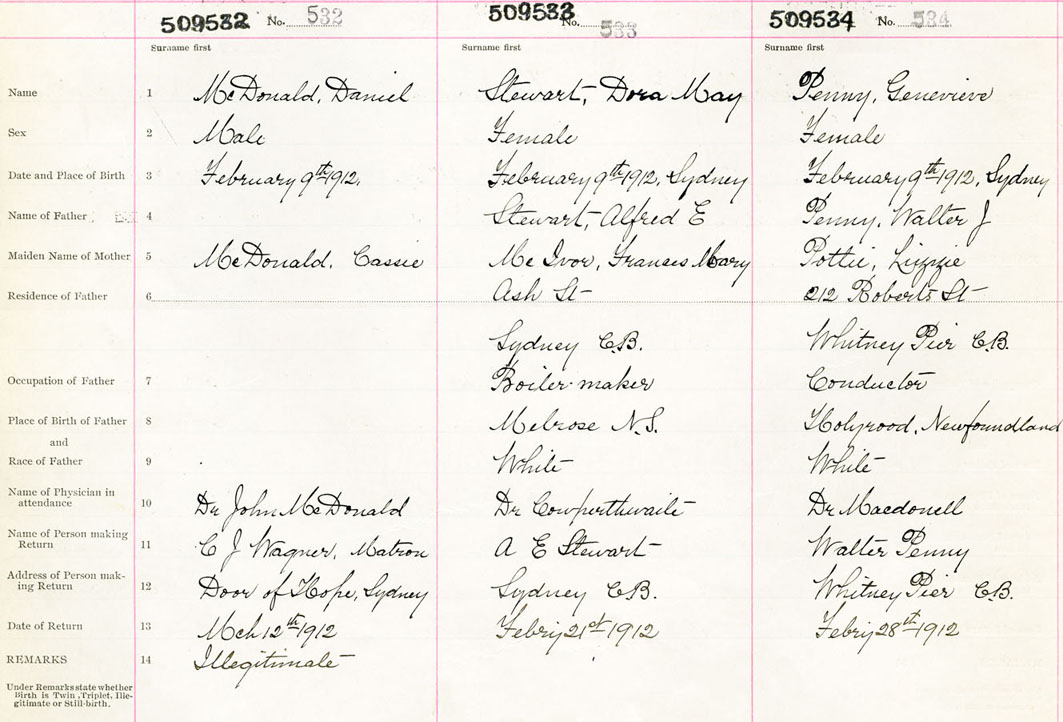 509532 No. 532 509533 No. 533 509534 No. 534
Surname first Surname first Surname first
Name 1 McDonald, Daniel Stewart, Dora May Penny, Genevieve
Sex 2 Male Female Female
Date and Place of Birth 3 February 9th 1912, February 9th 1912, Sydney February 9th 1912, Sydney
Name of Father 4 Stewart, Alfred E Penny, Walter J
Maiden Name of Mother 5 McDonald, Cassie McIvor, Frances Mary Pottie, Lizzie
Residence of Father 6 Ash St 212 Roberts St
Sydney C.B. Whitney Pier C.B.
Occupation of Father 7 Boiler maker Conductor
Place of Birth of Father 8 Melrose N.S. Holyrood, Newfoundland
and
Race of Father 9 White White
Name of Physician in
attendance 10 Dr John McDonald Dr Cowperthwaite Dr Macdonell
Name of Person making
Return 11 C J Wagner, Matron A E Stewart Walter Penny
Address of Person mak-
ing Return 12 Door of Hope, Sydney Sydney C.B. Whitney Pier C.B.
Date of Return 13 Mch 12th 1912 Febriy 21st 1912 Febriy 28th 1912
REMARKS 14 Illegitimate
Under Remarks state whether
Birth is Twin, Triplet, Ille-
gitimate or Still-birth.